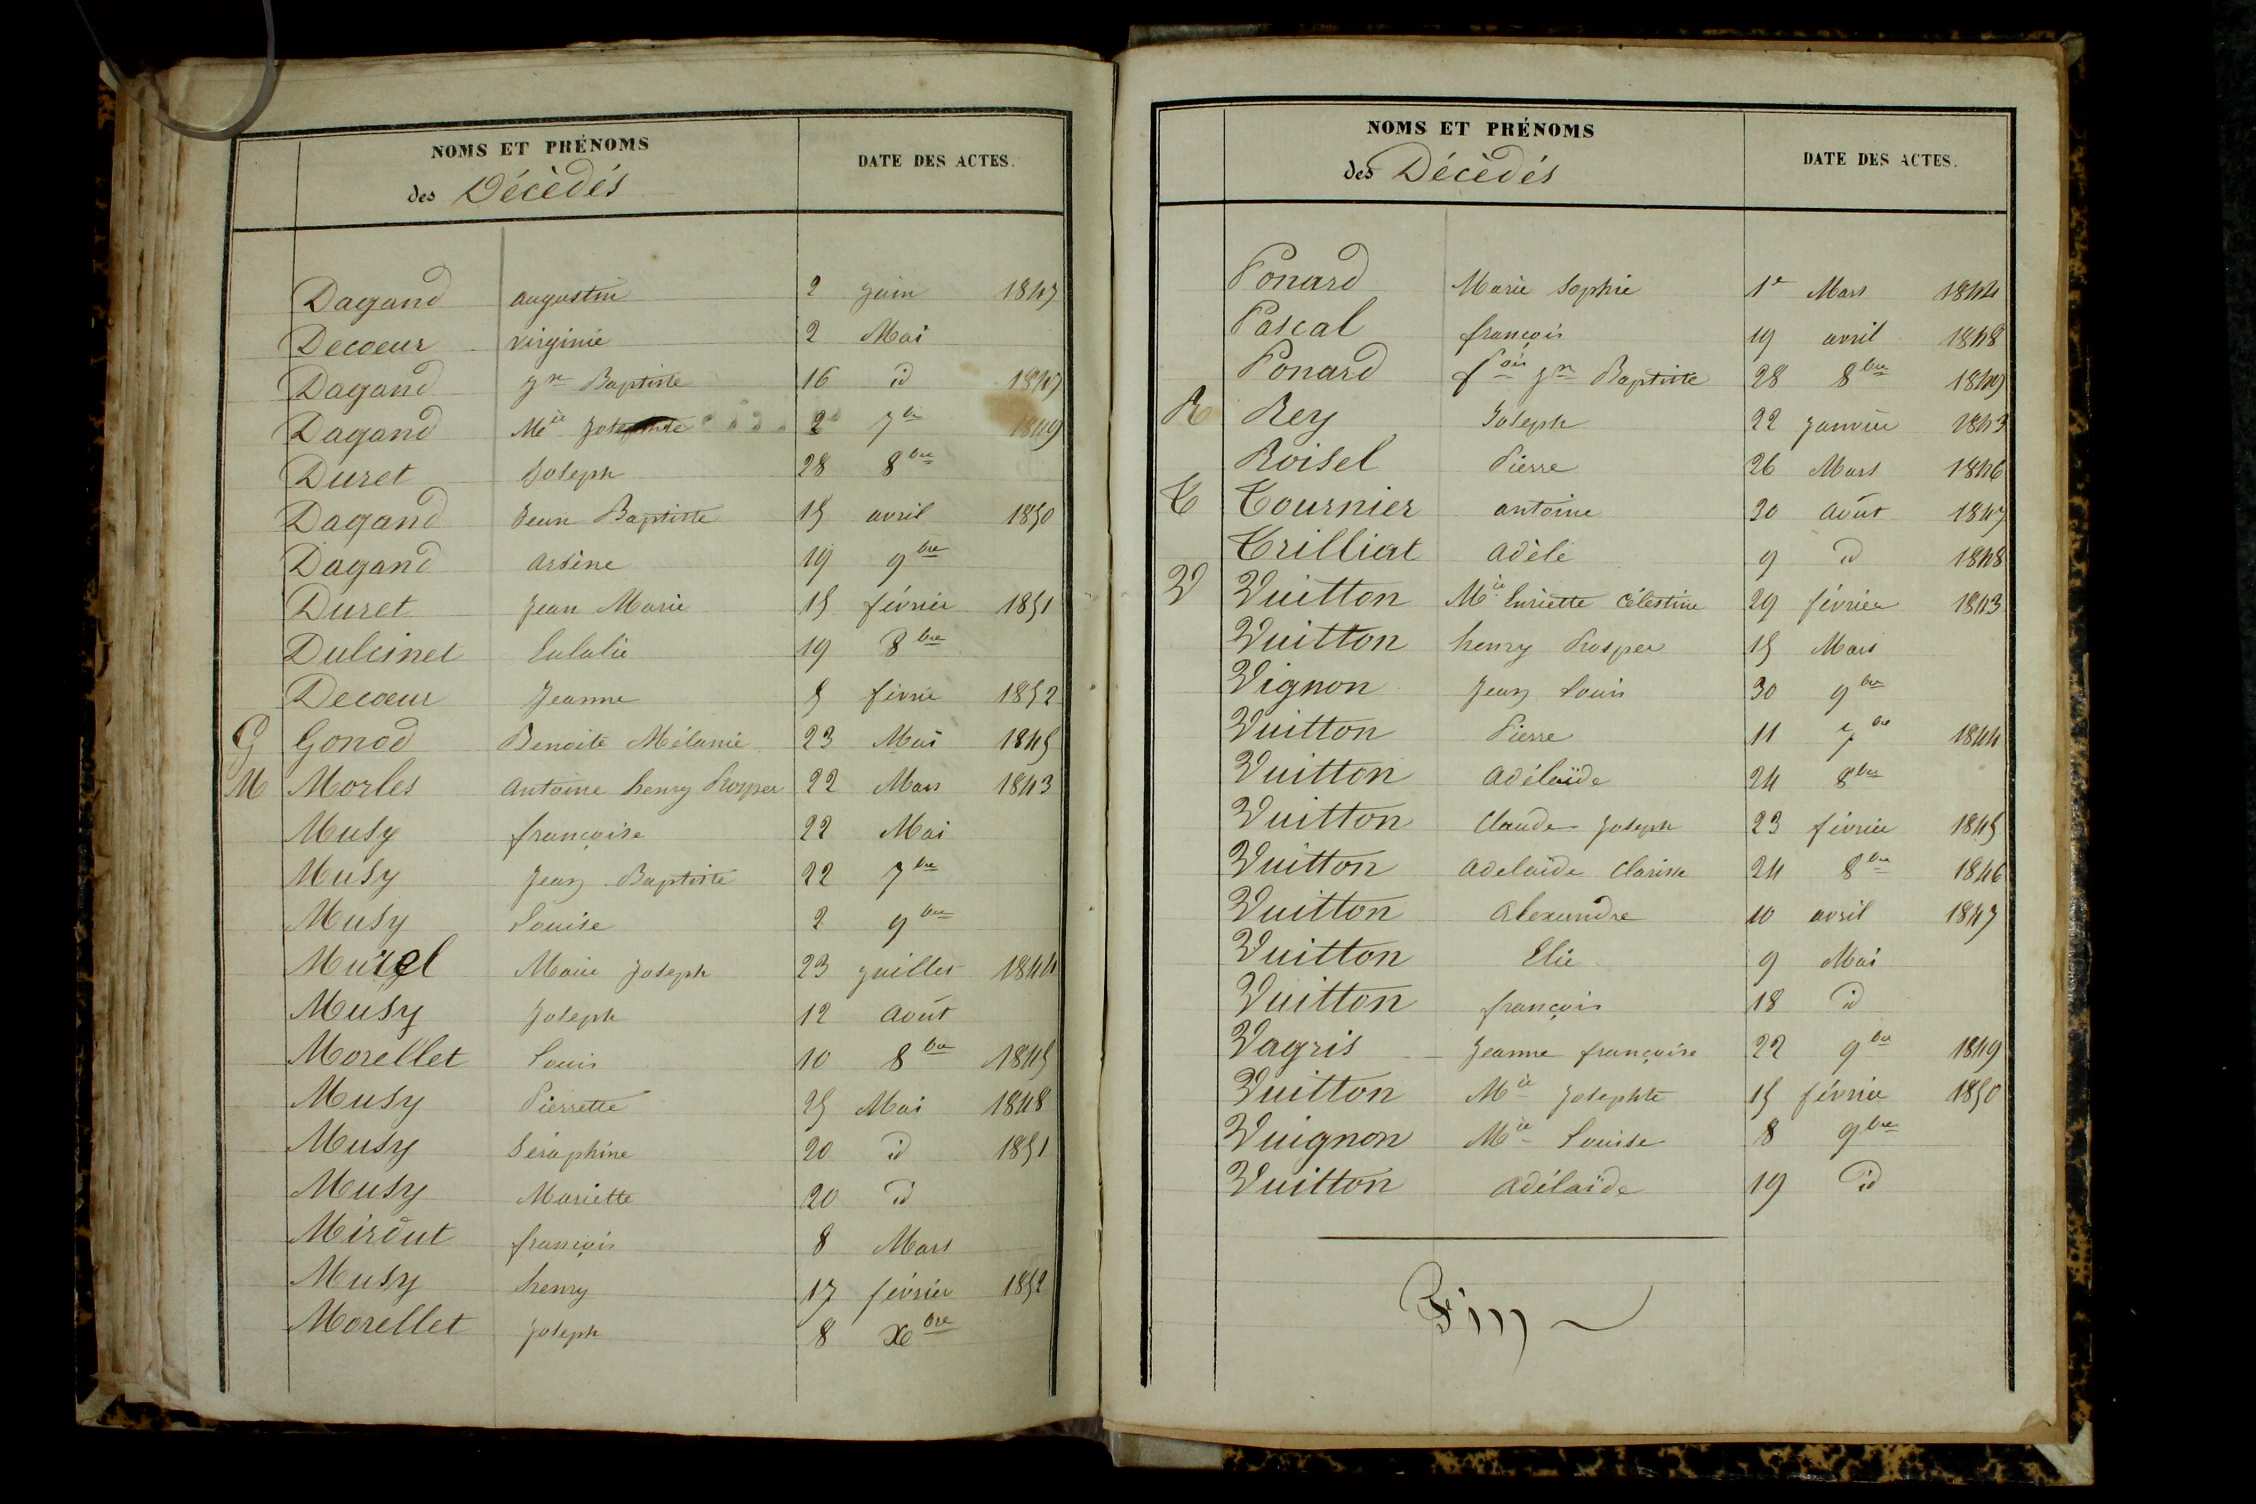 NOMS ET PRÉNOMS
des Décédés
DATE DES ACTES.
Dagand augustin 2 juin 1847
Decoeur virginie 2 Mai
Dagand Jn Baptiste 16 id 1847
Dagand Mie Josephte 2 7bre 1849
Duret Joseph 28 8bre
Dagand Jean Baptiste 15 avril 1850
Dagand arsène 19 9bre
Duret Jean Marie 15 février 1851
Dulcinet Eulalie 19 8bre
Decoeur Jeanne 5 février 1852
G Gonod Benoite Mélanie 23 Mai 1845
M Morles Antoine henry Prosper 22 Mars 1843
Musy françoise 22 Mai
Musy Jean Baptiste 22 7bre
Musy Louise 2 9bre
Murel Marie Joseph 23 juillet 1844
Musy Joseph 12 Août
Morellet Louis 10 8bre 1845
Musy Pierrette 25 Mai 1848
Musy Séraphine 20 id 1851
Musy Mariette 20 id
françois 8 Mars
Musy henry 17 février 1852
Morellet Joseph 8 Xbre
NOMS ET PRÉNOMS
des Décédés
DATE DES ACTES.
Ponard Marie Sophie 1er Mars 1844
Pascal françois 19 avril 1848
Ponard fçois Jn Baptiste 28 8bre 1849
R Rey Joseph 22 Janvier 1843
Roisel Pierre 26 Mars 1846
T Tournier antoine 30 août 1847
Trilliat adèle 9 id 1848
V Vuitton Mie henriette Célestine 29 février 1843
Vuitton henry Prosper 15 Mars
Vignon Jean Louis 30 9bre
Vuitton Pierre 11 7bre 1844
Vuitton adélaïde 24 8bre
Vuitton Claude Joseph 23 février 1845
Vuitton adelaïde Clarisse 24 8bre 1846
Vuitton Alexandre 10 avril 1847
Vuitton Elie 9 Mai
Vuitton françois 18 id
Vagris Jeanne françoise 22 9bre 1849
Vuitton Mie Josephte 15 février 1850
Vuignon Mie Louise 8 9bre
Vuitton adélaïde 19 id
Fin